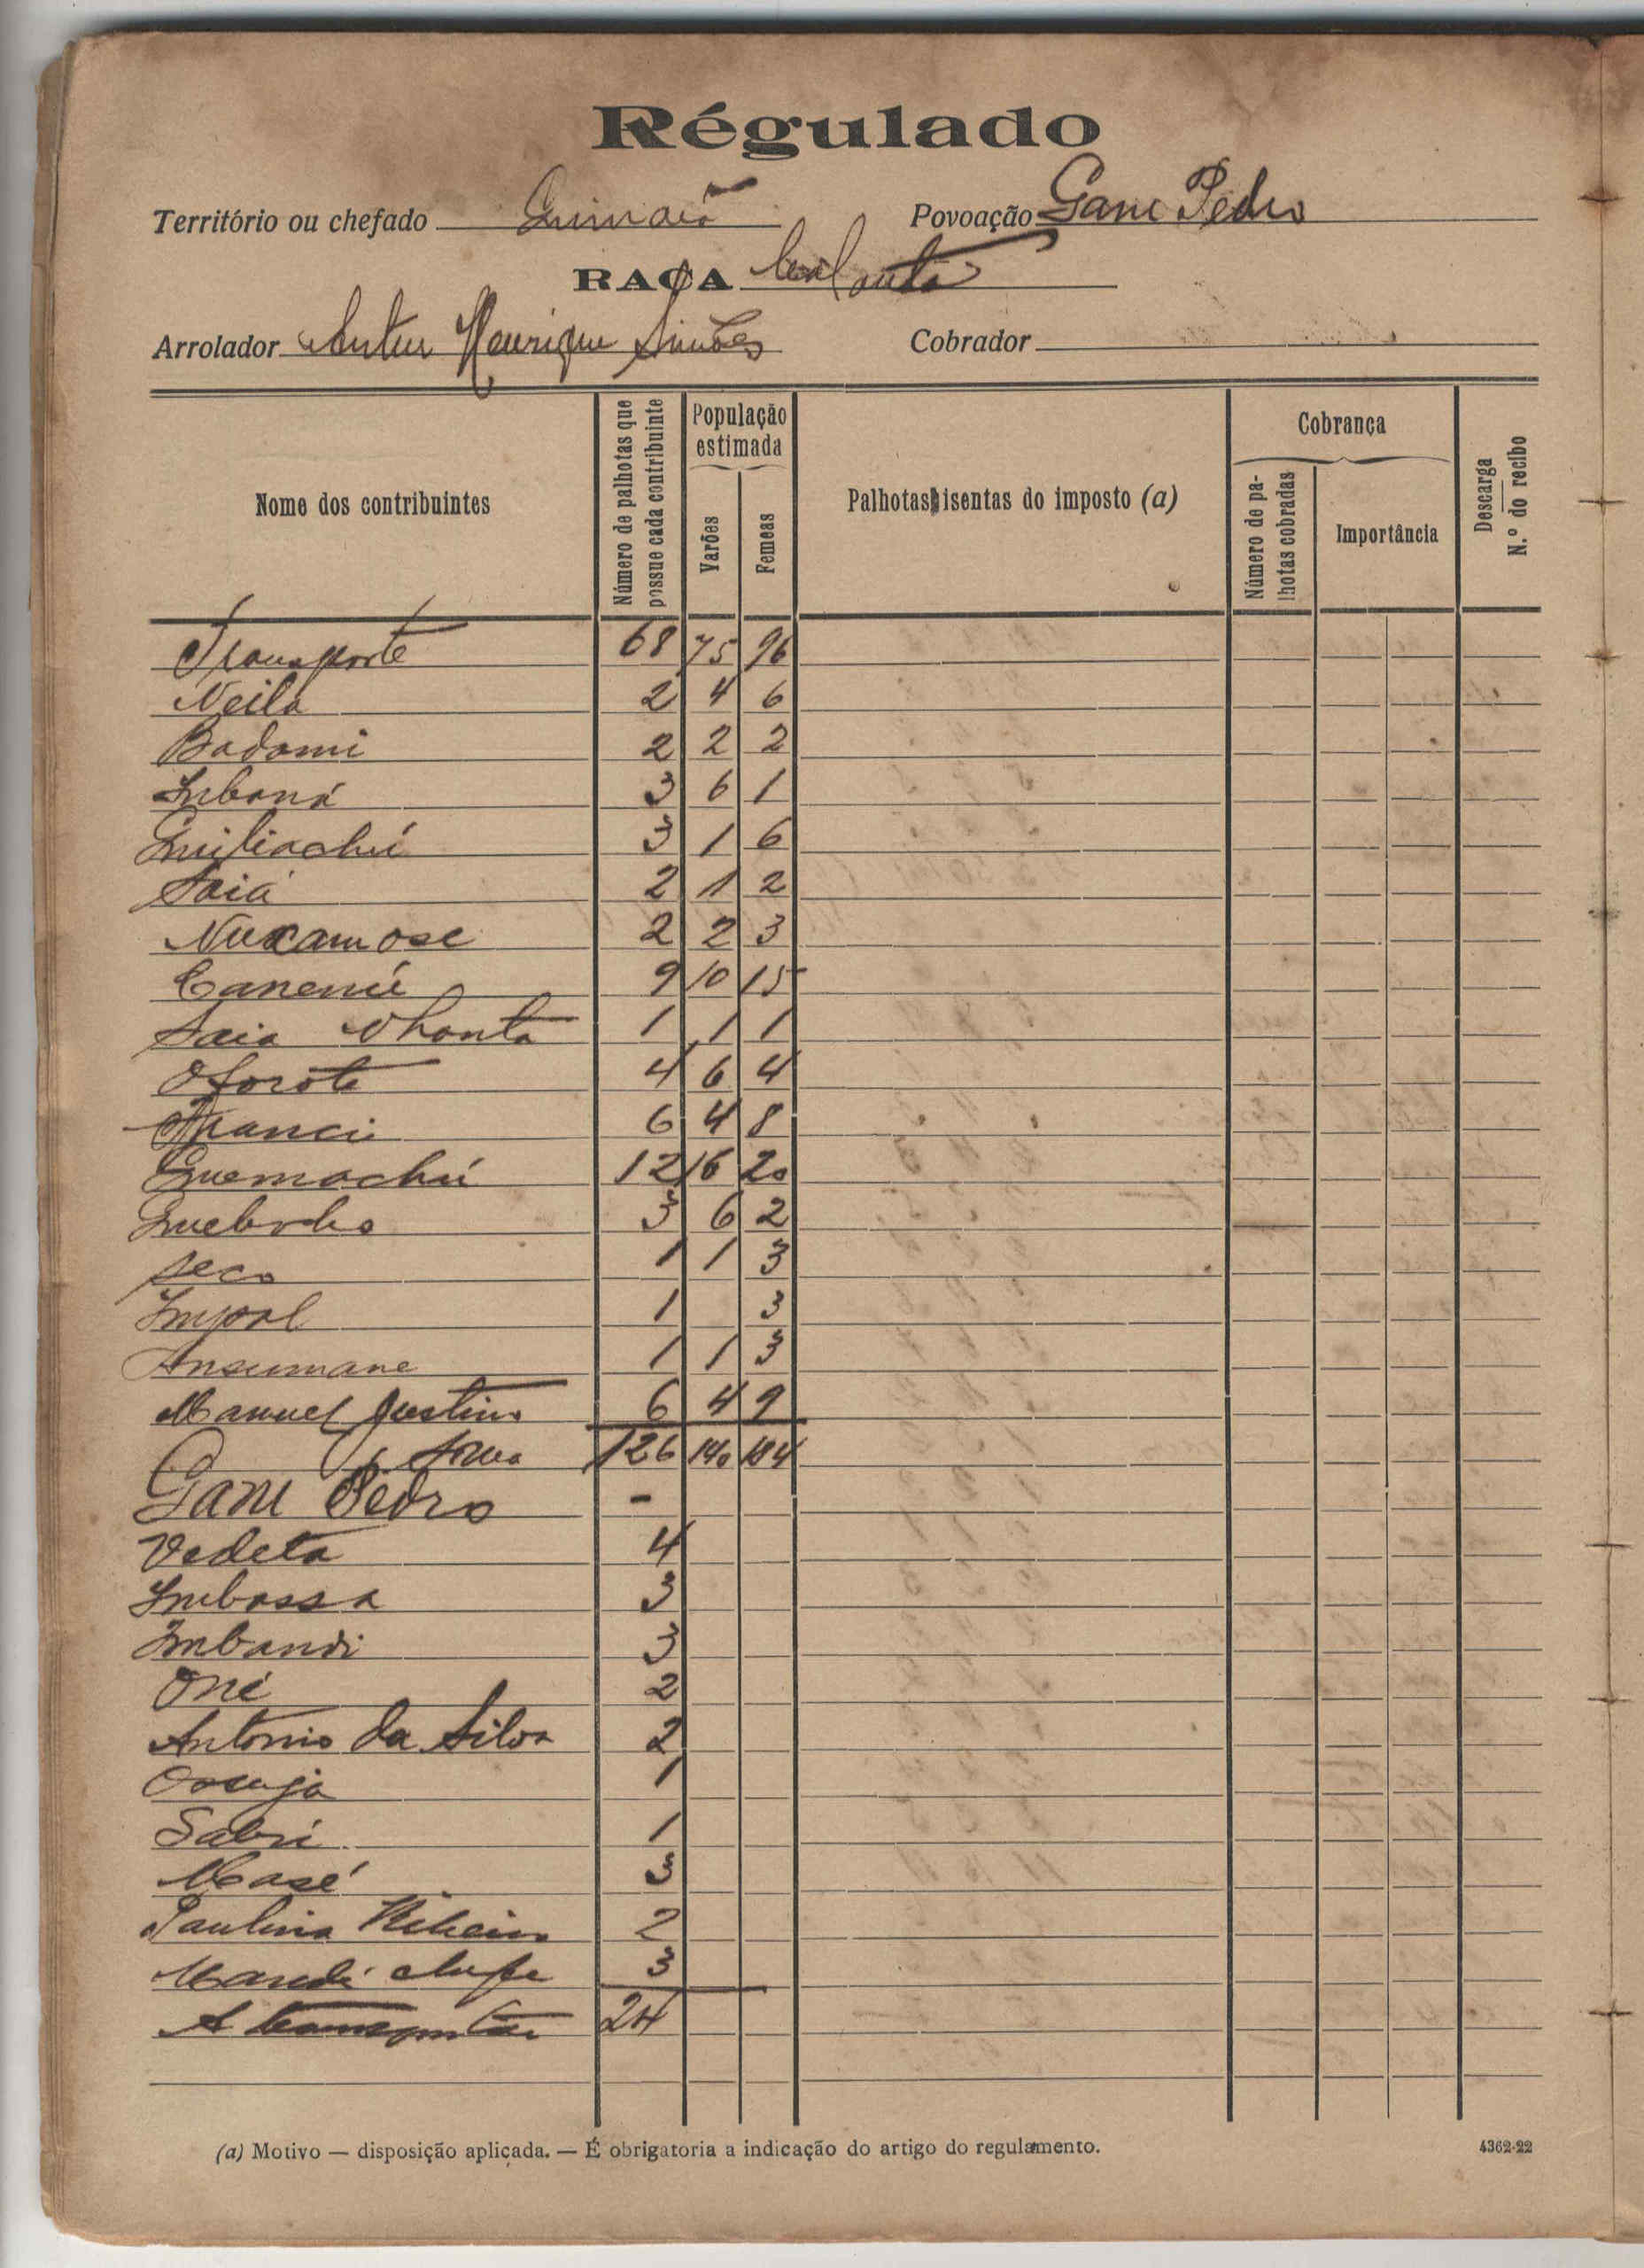 Régulado
Território ou chefado Povoação Gani Pedro
RAÇA
Arrolador Artur Henrique Simões Cobrador
Nome dos contribuintes
Número de palhotas que possue cada contribuinte
População estimada
Varões
Femeas
Palhotas isentas do imposto (a)
Cobrança
Número de palhotas cobradas
Importância
Descarga
N.º do recibo
Transporte 68 75 96
Neila 2 4 6
Badomi 2 2 2
Inboná 3 6 1
3 1 6
Saiá 2 1 2
2 2 3
9 10 15
Saia 1 1 1
4 6 4
6 4 8
Guemachú 12 16 20
3 6 2
Seco 1 1 3
1 3
Ansumane 1 1 3
Manuel Justino 6 4 9
Soma 126 140 184
Gani Pedro -
Vedeta 4
Imbassa 3
Imbandi 3
Oné 2
Antonio da Silva 2
1
Sabri 1
3
Paulino Ribeiro 2
3
A transportar 24
(a) Motivo — disposição aplicada. — É obrigatoria a indicação do artigo do regulamento.
4362-22